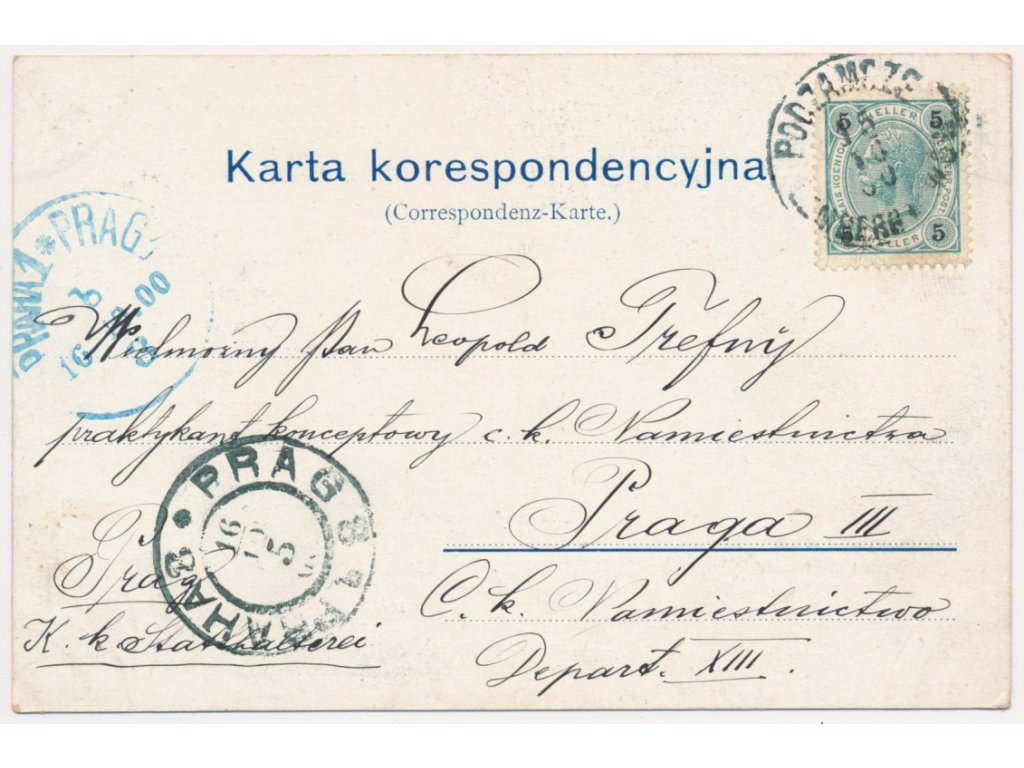 Karta korespondencyjna.
(Correspondenz-Karte.)
PODZAMCZE
15 10 00
5 HELLER 5
5 HELLER 5
PRAG
PRAHA 1
16 00
8
Wielmożny Pan Leopold Třefný
praktykant konceptowy c. k. Namiestnictwa
Praga III
C. k. Namiestnictwo
Depart. XIII.
Prag
K. k. Statthalterei
PRAG 3
PRAHA 3
16 10
5